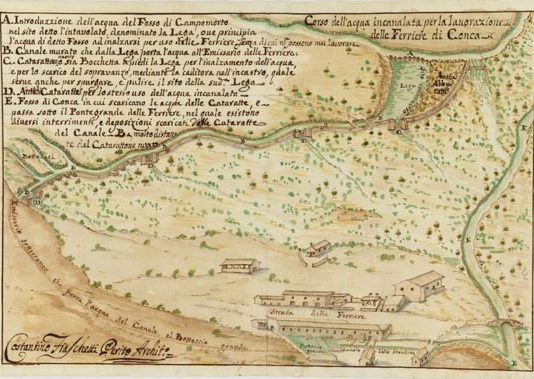 A. Introduzzione dell'acqua del Fosso di Campomorto
nel sito detto l'intavolato, denominato la Lega, ove principia
l'acqua di detto Fosso ad inalzarsi per uso delle Ferriere, senza di cui nō possono mai lavorare.
B. Canale murato che dalla Lega porta l'acqua all'Emissario delle Ferriere.
C. Catarattone sia Bocchetta
la Lega per l'inalzamento dell'acqua,
e per lo scarico del sopravanzo, mediante la caditora nell'incastro, quale
serve anche per spurgare, e pulire il sito della sud.ª Lega
D. Antiche Cataratte per lo steso uso dell'acqua incanalata
E. Fosso di Conca, in cui scaricano le acque delle Cataratte, e
passa sotto il Ponte grande delle Ferriere, nel quale esistono
diversi interrimenti, e deposizioni scaricati dalle Cataratte
del Canale B. molto distan
te dal Catarattone
Corso dell'acqua incanalata per la lavorazione
delle Ferriere di Conca
Lega
Emissario sotterraneo che porta l'acqua del Canale al Bottaccio grande
Strada delle Ferriere
Costantino Fiaschetti Perito Archit.º